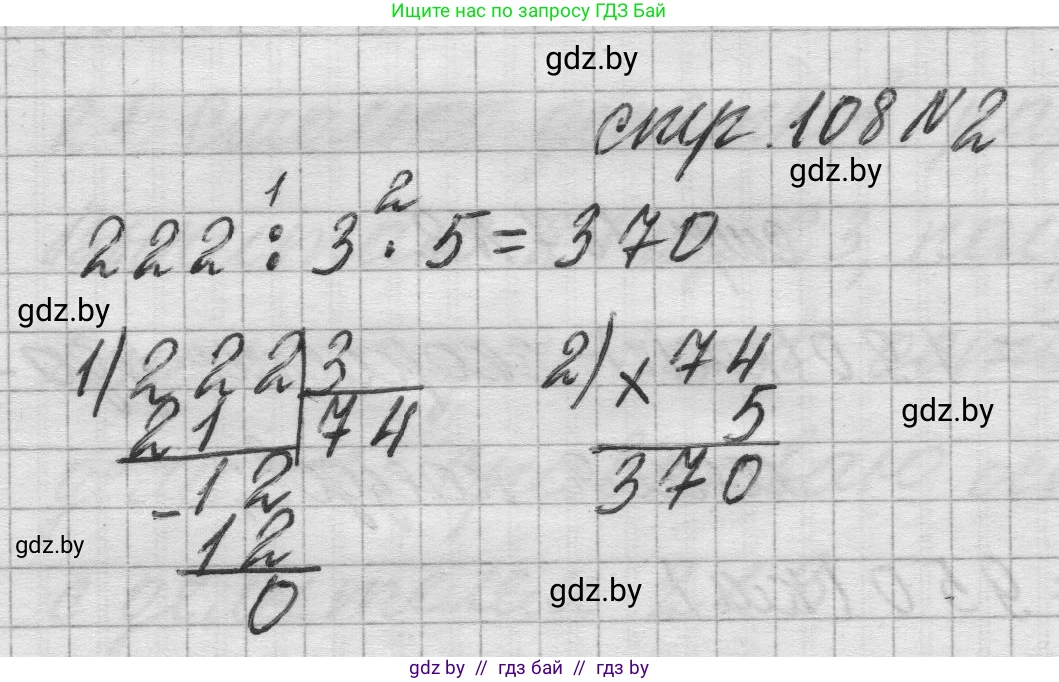 Ищите нас по запросу ГДЗ Бай
gdz.by
стр. 108 №2
gdz.by
1 2
222 : 3 · 5 = 370
gdz.by
1) 222 3
21 74
- 12
12
0
2) × 74
5
370
gdz.by
gdz.by
gdz.by
gdz by // гдз бай // гдз by